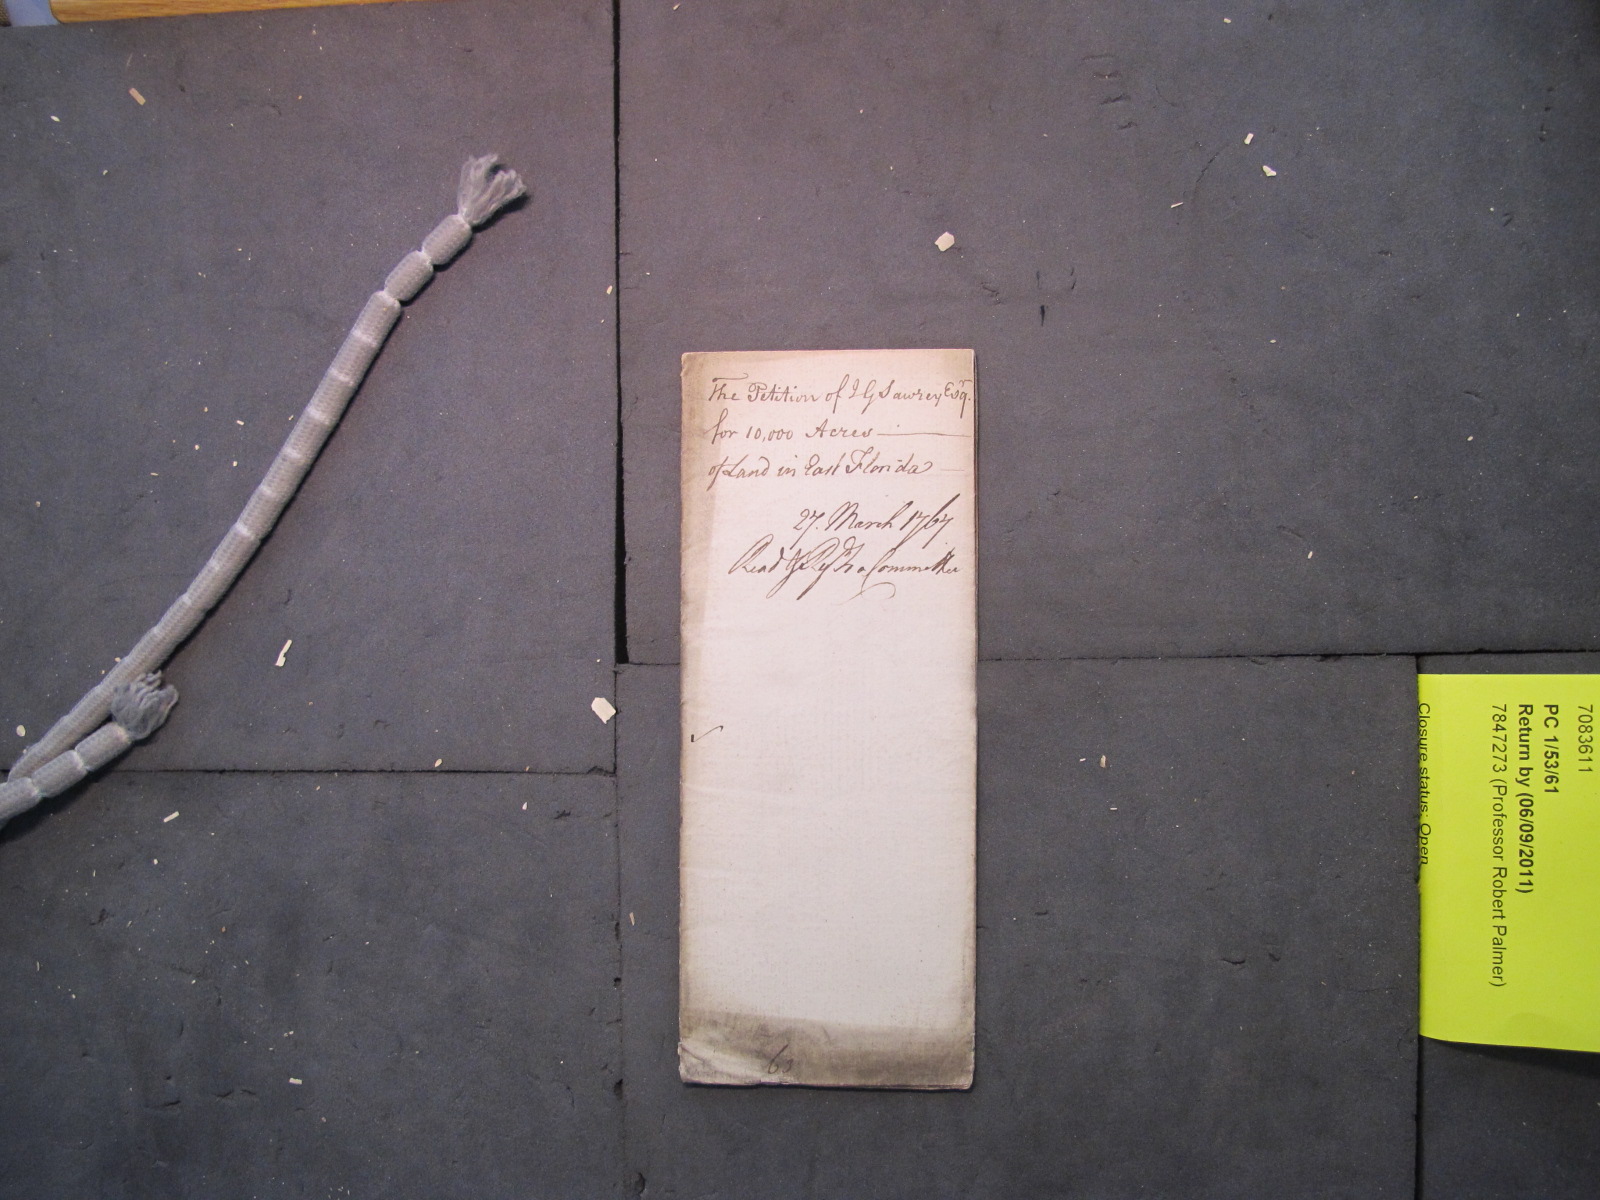 The Petition of J G Sawrey Esqr.
for 10,000 Acres
of Land in East Florida
27. March 1767
Read & Refd to a Committee
7083611
PC 1/53/61
Return by (06/09/2011)
7847273 (Professor Robert Palmer)
Closure status: Open